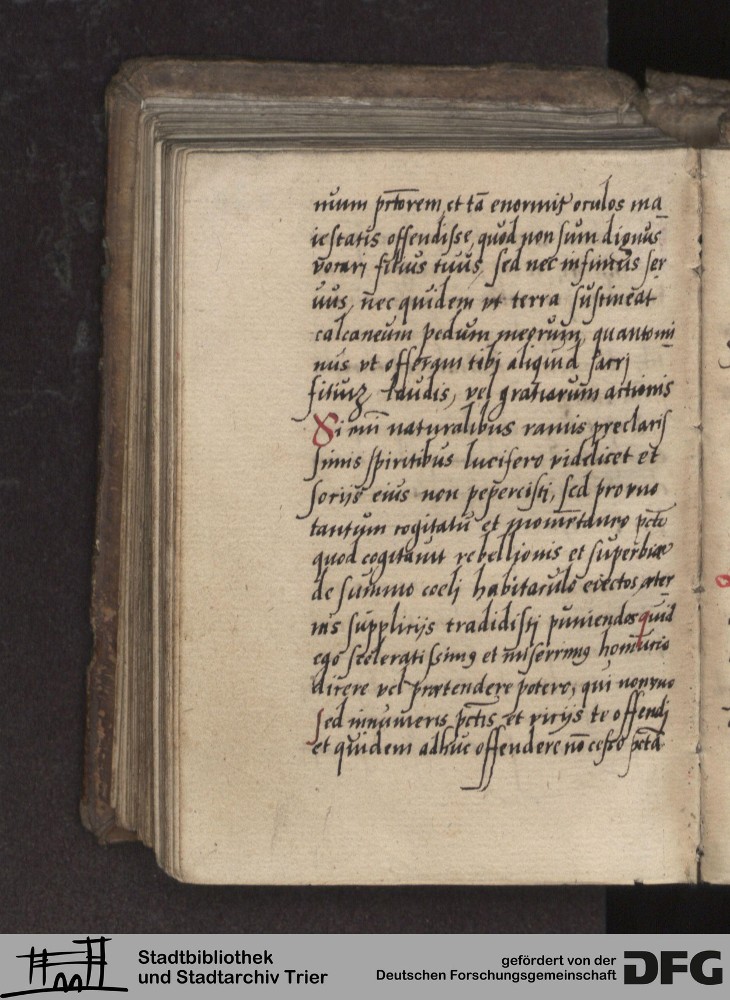 nium pctorem, et tā enormit oculos ma
iestatis offendisse, quod non sum dignus
vocari filius tuus, sed nec infimus ser
uus, nec quidem vt terra sustineat
calcaneum pedum meorum, quantomi
nus vt offeram tibi aliquid sacri
fitiuȝ laudis, vel gratiarum actionis
Si eni naturalibus ramis preclaris
simis spiritibus lucifero videlicet et
sorijs eius non pepercisti, sed pro vno
tantum cogitatu et momētaneo pcto
quod cogitauit rebellionis et superbiae
de summo coeli habitaculo eiectos aeter
nis supplicijs tradidisti puniendos quid
ego sceleratissimus et miserrimus homūtio
dicere vel praetendere potero, qui non vno
sed innumeris pctis et vicijs te offendi
et quidem adhuc offendere nō cesso pctā
Stadtbibliothek
und Stadtarchiv Trier
gefördert von der
Deutschen Forschungsgemeinschaft
DFG